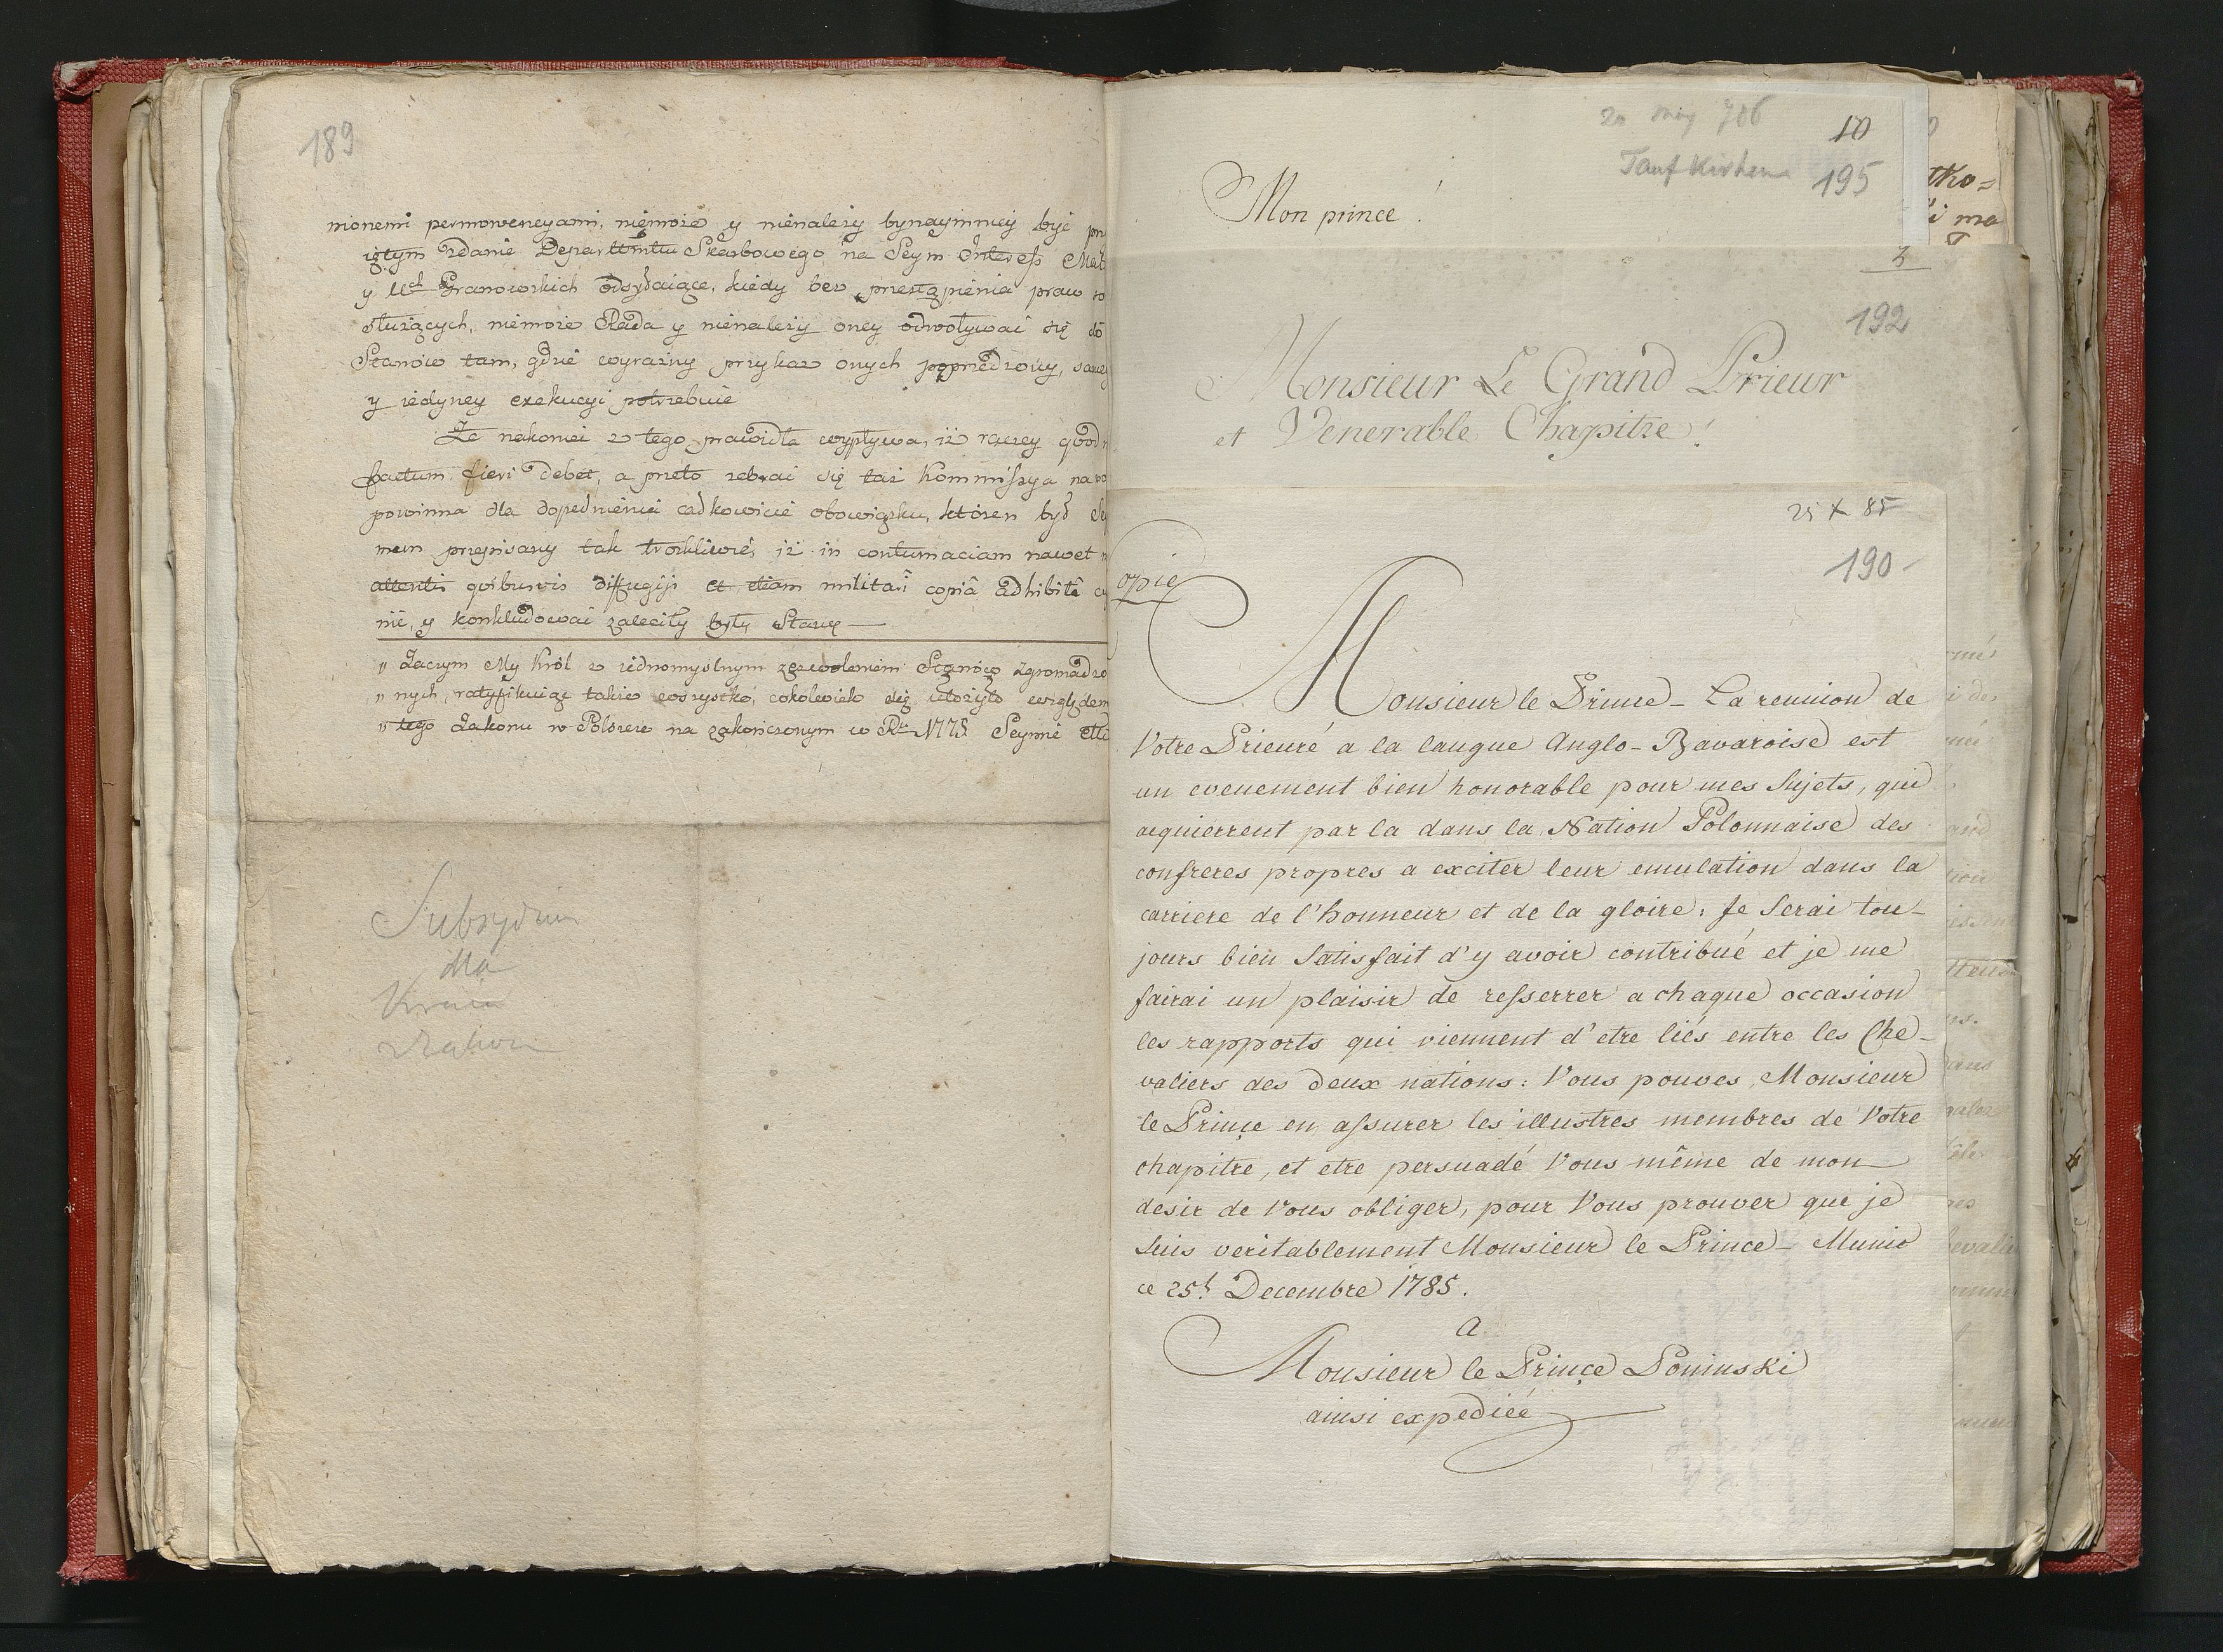 189
nionemi permowencyami, niemoże y nienależy bynaymniey być
iętym zdanie Departmtu Skarbowego na Seym Interess
y Ucħ Granowskich odsyłaiące, kiedy bez przestąpienia praw
służących, niemoże Rada y nienależy oney odwoływać się do
Stanów tam, gdzie wyraźny przykaz onych poprzedzony,
y iedyney exekucyi potrzebuie
Że nakoniec z tego prawidła wypływa, iż rzeczy quod
factum fieri debet, a przeto zebrać się taż Kommissya na
powinna dla dopełnienia całkowicie obowiązku, któren był
mem przepisany tak troskliwie, iż in contumaciam nawet
attentis quibusvis diffugiji et etiam militari copiâ adhibitâ
nić, y konkludować zaleciły były Stany —
" Zaczym My Król z iednomyślnym zezwoleniem Stanów zgromadzo
" nych, ratyfikuiąc także wszystko, cokolwiek się ułożyło względem
" tego Zakonu w Polszcze na zakończonym w Rku 1775 Seymie
Subsydium
dla
20 may 786
10
Taufkirchen
195
Mon prince!
tko=
i ma
2
192
Monsieur Le Grand Prieur
et Venerable Chapitre!
25 X 85
190
Copie
Monsieur le Prince – La reunion de
Votre Prieuré a la langue Anglo-Bavaroise est
un evenement bien honorable pour mes Sujets, qui
acquierrent par la dans la Nation Polonnaise des
confreres propres a exciter leur emulation dans la
carriere de l'honneur et de la gloire: Je Serai tou-
jours bien Satisfait d'y avoir contribué et je me
fairai un plaisir de resserrer a chaque occasion
les rapports qui viennent d'etre liés entre les Che-
valiers des deux nations: Vous pouves, Monsieur
le Prince en assurer les illustres membres de Votre
chapitre, et etre persuadé Vous même de mon
desir de Vous obliger, pour Vous prouver que je
Suis veritablement Monsieur le Prince – Munic
ce 25t Decembre 1785.
a
Monsieur le Prince Poninski
ainsi expediée